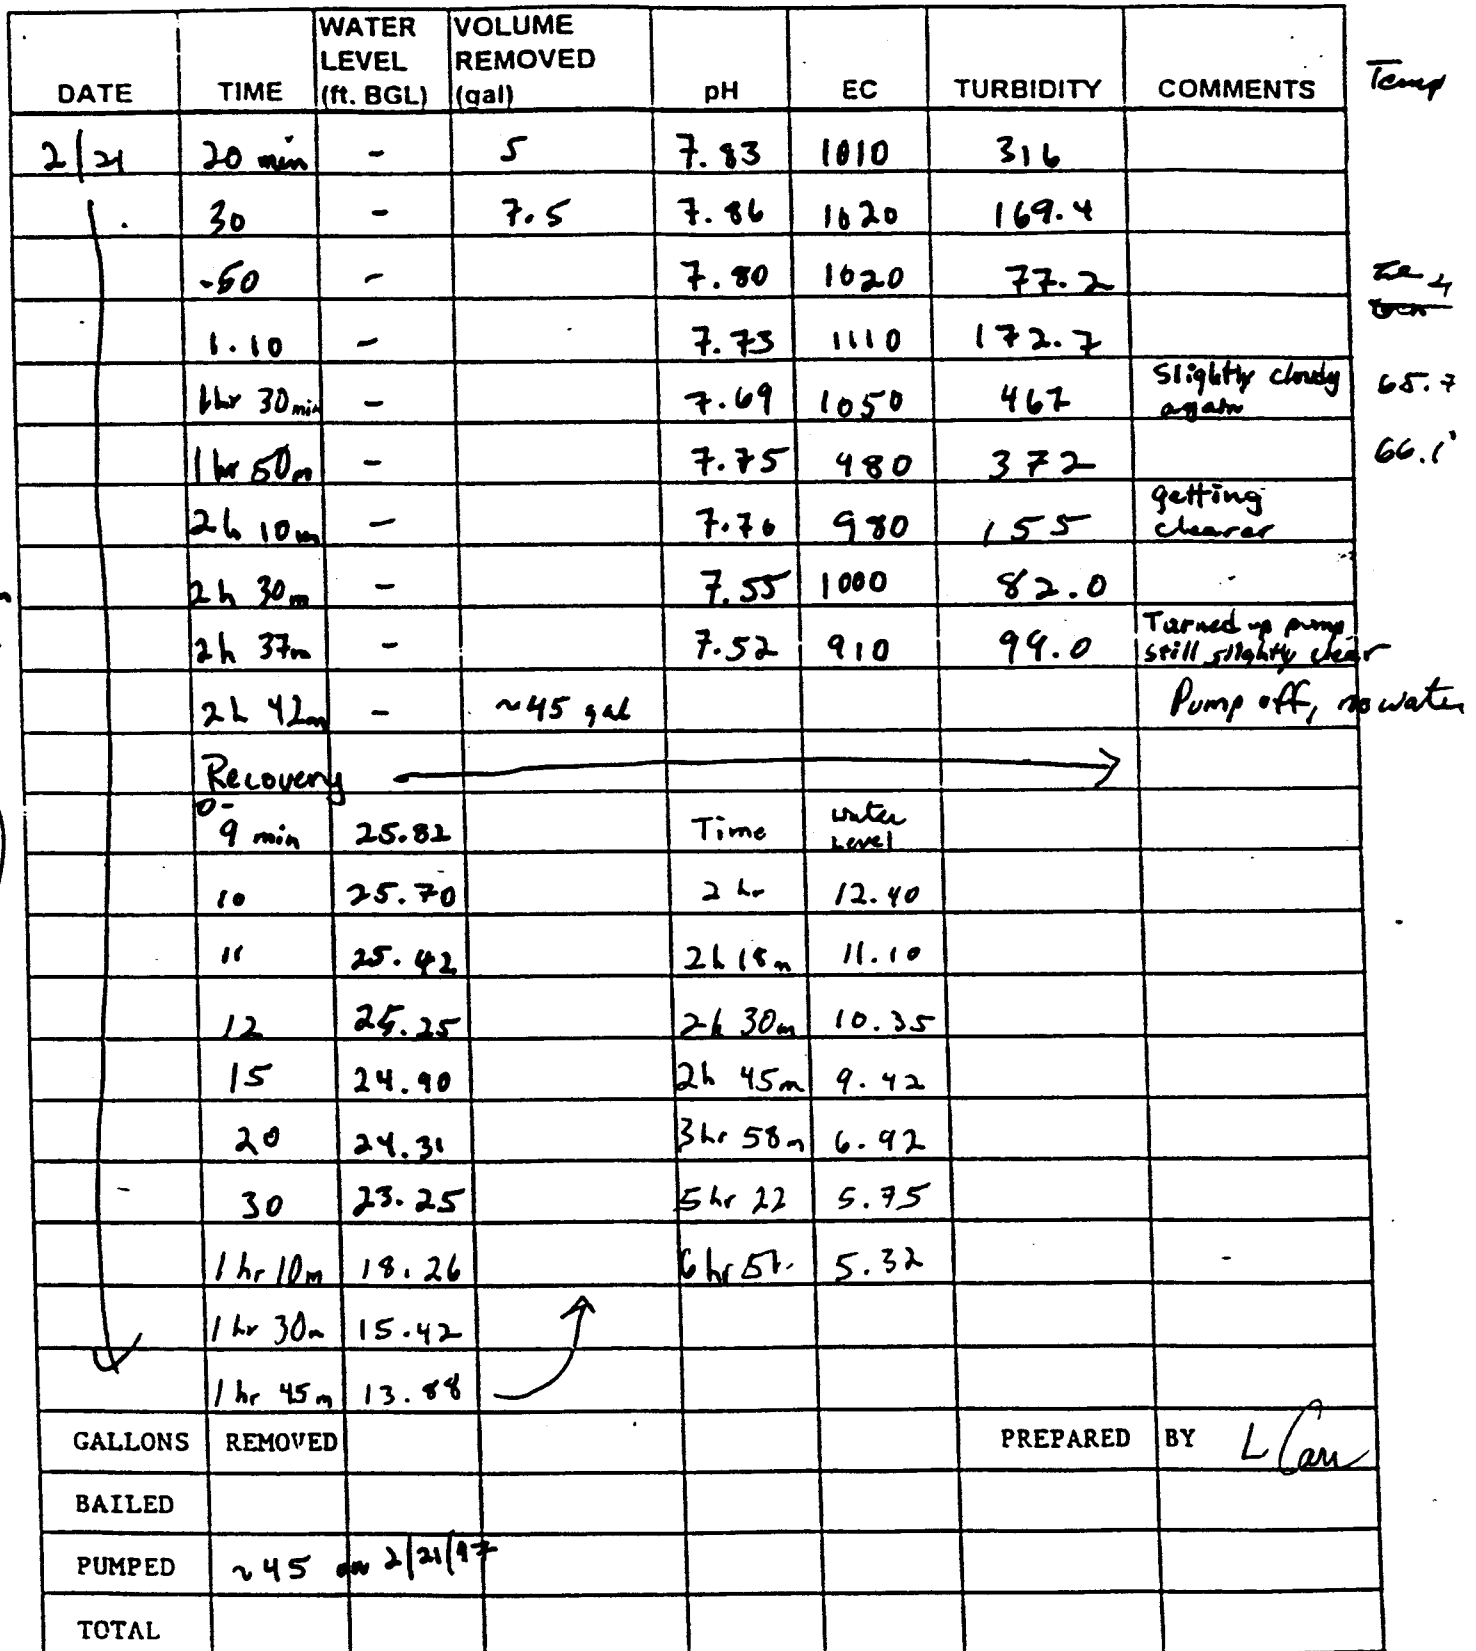 DATE TIME WATER LEVEL (ft. BGL) VOLUME REMOVED (gal) pH EC TURBIDITY COMMENTS Temp
2/21 20 min - 5 7.83 1010 316
30 - 7.5 7.86 1020 169.4
50 - 7.80 1020 77.2
1.10 - 7.73 1110 172.7
1hr 30min - 7.69 1050 467 Slightly cloudy again 65.7
1hr 50m - 7.75 980 372 66.1°
2h 10m - 7.76 980 155 getting clearer
2h 30m - 7.55 1000 82.0
2h 37m - 7.52 910 99.0 Turned up pump still slightly clear
2h 42m - ~45 gal Pump off, no water
Recovery
0-
9 min 25.82 Time water Level
10 25.70 2 hr 12.40
11 25.42 2h 18m 11.10
12 25.25 2h 30m 10.35
15 24.90 2h 45m 9.42
20 24.31 3hr 58m 6.92
30 23.25 5hr 22 5.75
1hr 10m 18.26 6hr 5.32
1hr 30m 15.42
1hr 45m 13.88
GALLONS REMOVED PREPARED BY L Carr
BAILED
PUMPED ~45 on 2/21/97
TOTAL